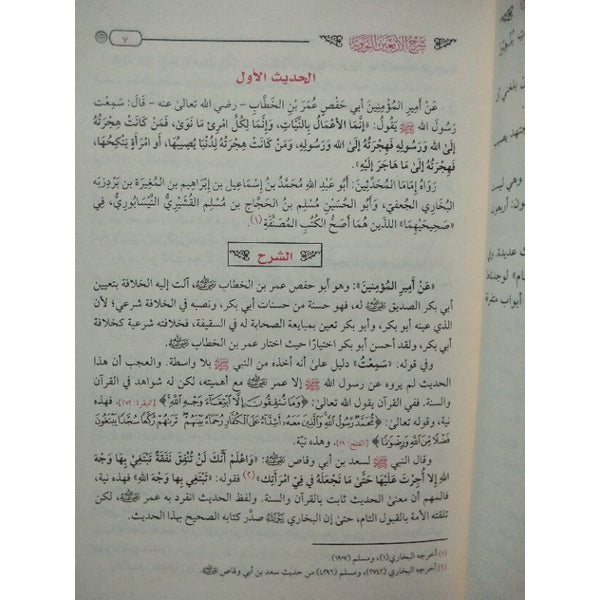 شرح الأربعين النووية
٧
الحديث الأول
عَنْ أَمِيرِ المُؤْمِنِينَ أَبي حَفْصٍ عُمَرَ بْنِ الخَطَّابِ - رضي الله تعالى عنه - قَالَ: سَمِعْت
رَسُولَ الله ﷺ يَقُولُ: «إِنَّمَا الأَعْمَالُ بِالنِّيَّاتِ، وَإِنَّمَا لِكُلِّ امْرِئٍ مَا نَوَى، فَمَنْ كَانَتْ هِجْرَتُهُ
إِلَى الله وَرَسُولِهِ فَهِجْرَتُهُ إِلَى الله وَرَسُولِهِ، وَمَنْ كَانَتْ هِجْرَتُهُ لِدُنْيَا يُصِيبُهَا، أَو امْرَأَةٍ يَنْكِحُهَا،
فَهِجْرَتُهُ إِلَى مَا هَاجَرَ إِلَيْهِ».
رَوَاهُ إِمَامَا المُحَدِّثِينَ: أَبُو عَبْدِ الله مُحَمَّدُ بنُ إِسْمَاعِيل بن إِبْرَاهِيم بن المُغِيرَة بن بَرْدِزبَه
البُخَارِي الجُعفِيّ، وَأَبُو الحُسَيْنِ مُسْلِم بنُ الحَجَّاج بن مُسْلِم القُشَيْرِيُّ النَّيْسَابُورِيُّ، فِي
«صَحِيحَيْهِمَا» اللذَين هُمَا أَصَحُّ الكُتُبِ المُصَنَّفَةِ (١).
الشرح
«عَنْ أَمِيرِ المُؤْمِنِينَ»: وهو أبو حفص عمر بن الخطاب ﵁، آلت إليه الخلافة بتعيين
أبي بكر الصديق ﵁ له، فهو حسنة من حسنات أبي بكر، ونصبه في الخلافة شرعي؛ لأن
الذي عينه أبو بكر، وأبو بكر تعين بمبايعة الصحابة له في السقيفة، فخلافته شرعية كخلافة
أبي بكر، ولقد أحسن أبو بكر اختيارًا حيث اختار عمر بن الخطاب ﵁.
وفي قوله: «سَمِعْتُ» دليل على أنه أخذه من النبي ﷺ بلا واسطة. والعجب أن هذا
الحديث لم يروه عن رسول الله ﷺ إلا عمر ﵁ مع أهميته، لكن له شواهد في القرآن
والسنة. ففي القرآن يقول الله تعالى: ﴿وَمَا تُنفِقُونَ إِلَّا ٱبْتِغَآءَ وَجْهِ ٱللَّهِ﴾ [البقرة: ٢٧٢]، فهذه
نية، وقوله تعالى: ﴿مُّحَمَّدٌ رَّسُولُ ٱللَّهِ وَٱلَّذِينَ مَعَهُۥٓ أَشِدَّآءُ عَلَى ٱلْكُفَّارِ رُحَمَآءُ بَيْنَهُمْ تَرَىٰهُمْ رُكَّعًا سُجَّدًا يَبْتَغُونَ
فَضْلًا مِّنَ ٱللَّهِ وَرِضْوَٰنًا﴾ [الفتح: ٢٩]، وهذه نيّة.
وقال النبي ﷺ لسعد بن أبي وقاص ﵁: «وَاعْلَمْ أَنَّكَ لَنْ تُنْفِقَ نَفَقَةً تَبْتَغِي بِهَا وَجْهَ
الله إِلا أُجِرْتَ عَلَيْهَا حَتَّى مَا تَجْعَلُهُ فِي فِيْ امْرَأَتِك» (٢) فقوله: «تَبْتَغِي بِها وَجهَ اللهِ» فهذه نية،
فالمهم أن معنى الحديث ثابت بالقرآن والسنة. ولفظ الحديث انفرد به عمر ﵁، لكن
تلقته الأمة بالقبول التام، حتى إن البخاري ﵀ صدَّر كتابه الصحيح بهذا الحديث.
(١) أخرجه البخاري (١)، ومسلم (١٩٠٧)
(٢) أخرجه البخاري (٢٧٤٢)، ومسلم (٤٢٩٦) من حديث سعد بن أبي وقاص ﵁.